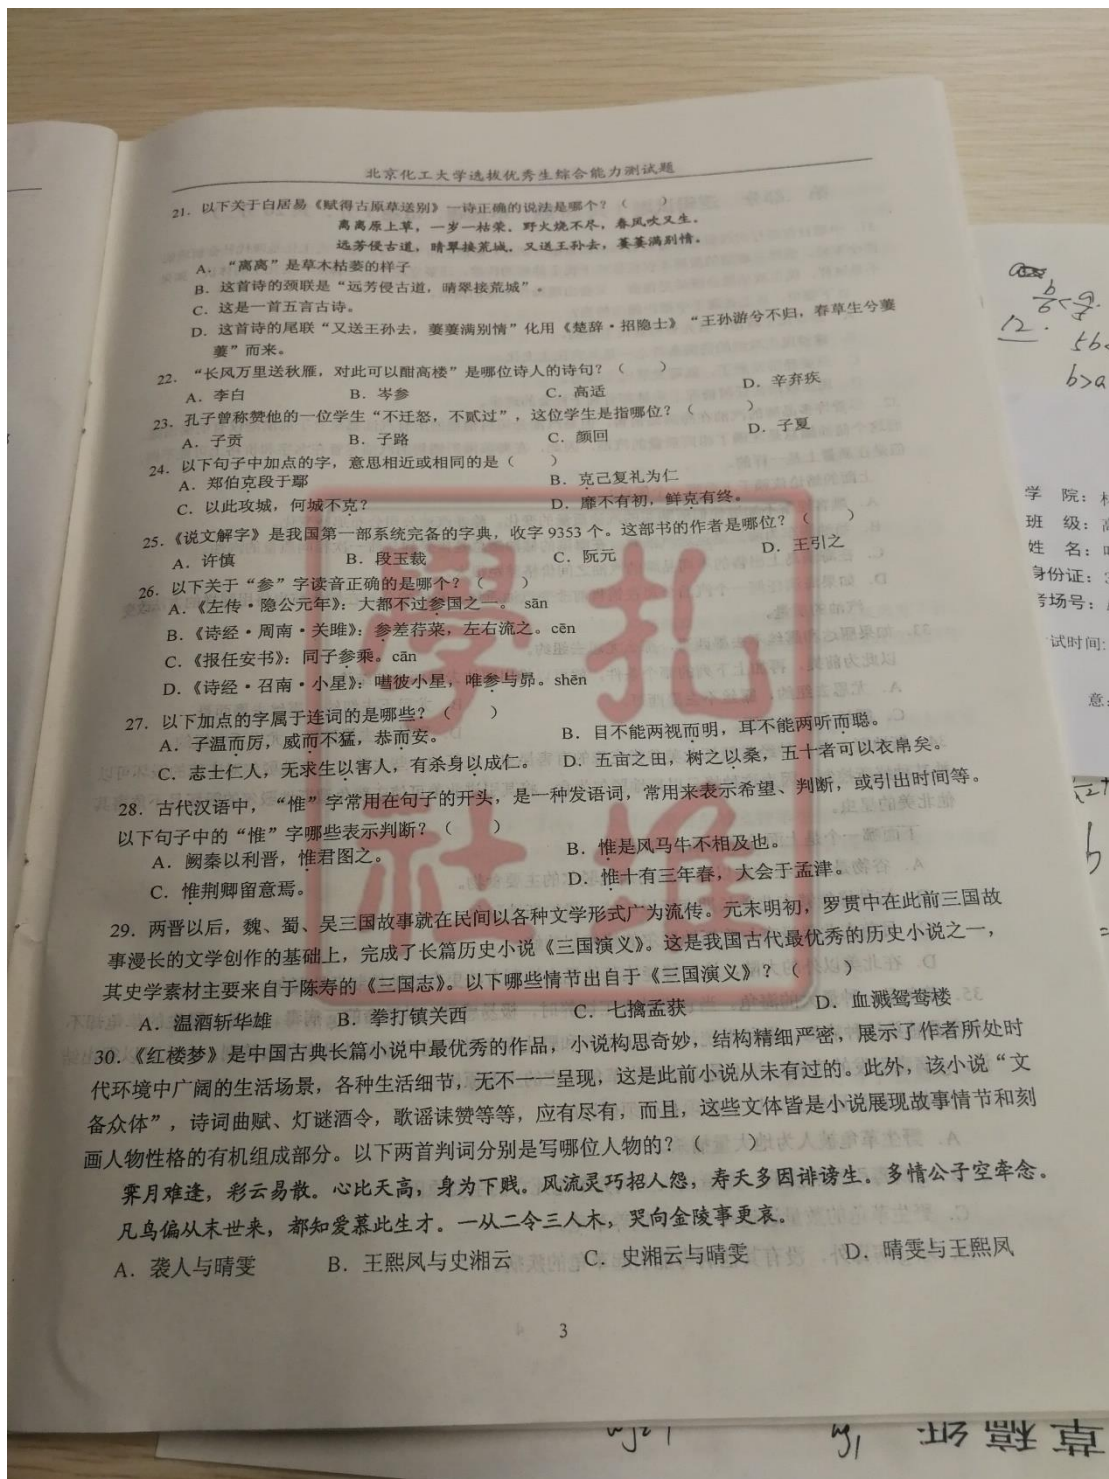 北京化工大学选拔优秀生综合能力测试题
21. 以下关于白居易《赋得古原草送别》一诗正确的说法是哪个？（ ）
离离原上草，一岁一枯荣．野火烧不尽，春风吹又生．
远芳侵古道，晴翠接荒城．又送王孙去，萋萋满别情．
A. “离离”是草木枯萎的样子
B. 这首诗的颈联是“远芳侵古道，晴翠接荒城”。
C. 这是一首五言古诗。
D. 这首诗的尾联“又送王孙去，萋萋满别情”化用《楚辞·招隐士》“王孙游兮不归，春草生兮萋
萋”而来。
22. “长风万里送秋雁，对此可以酣高楼”是哪位诗人的诗句？（ ）
A. 李白 B. 岑参 C. 高适 D. 辛弃疾
23. 孔子曾称赞他的一位学生“不迁怒，不贰过”，这位学生是指哪位？（ ）
A. 子贡 B. 子路 C. 颜回 D. 子夏
24. 以下句子中加点的字，意思相近或相同的是（ ）
A. 郑伯克段于鄢 B. 克己复礼为仁
C. 以此攻城，何城不克？ D. 靡不有初，鲜克有终。
25. 《说文解字》是我国第一部系统完备的字典，收字 9353 个。这部书的作者是哪位？（ ）
A. 许慎 B. 段玉裁 C. 阮元 D. 王引之
26. 以下关于“参”字读音正确的是哪个？（ ）
A. 《左传·隐公元年》：大都不过参国之一。 sān
B. 《诗经·周南·关雎》：参差荇菜，左右流之。cēn
C. 《报任安书》：同子参乘。cān
D. 《诗经·召南·小星》：嘒彼小星，唯参与昴。shēn
27. 以下加点的字属于连词的是哪些？（ ）
A. 子温而厉，威而不猛，恭而安。 B. 目不能两视而明，耳不能两听而聪。
C. 志士仁人，无求生以害人，有杀身以成仁。 D. 五亩之田，树之以桑，五十者可以衣帛矣。
28. 古代汉语中，“惟”字常用在句子的开头，是一种发语词，常用来表示希望、判断，或引出时间等。
以下句子中的“惟”字哪些表示判断？（ ）
A. 阙秦以利晋，惟君图之。 B. 惟是风马牛不相及也。
C. 惟荆卿留意焉。 D. 惟十有三年春，大会于孟津。
29. 两晋以后，魏、蜀、吴三国故事就在民间以各种文学形式广为流传。元末明初，罗贯中在此前三国故
事漫长的文学创作的基础上，完成了长篇历史小说《三国演义》。这是我国古代最优秀的历史小说之一，
其史学素材主要来自于陈寿的《三国志》。以下哪些情节出自于《三国演义》？（ ）
A. 温酒斩华雄 B. 拳打镇关西 C. 七擒孟获 D. 血溅鸳鸯楼
30. 《红楼梦》是中国古典长篇小说中最优秀的作品，小说构思奇妙，结构精细严密，展示了作者所处时
代环境中广阔的生活场景，各种生活细节，无不一一呈现，这是此前小说从未有过的。此外，该小说“文
备众体”，诗词曲赋、灯谜酒令，歌谣诔赞等等，应有尽有，而且，这些文体皆是小说展现故事情节和刻
画人物性格的有机组成部分。以下两首判词分别是写哪位人物的？（ ）
霁月难逢，彩云易散。心比天高，身为下贱。风流灵巧招人怨，寿夭多因诽谤生。多情公子空牵念。
凡鸟偏从末世来，都知爱慕此生才。一从二令三人木，哭向金陵事更哀。
A. 袭人与晴雯 B. 王熙凤与史湘云 C. 史湘云与晴雯 D. 晴雯与王熙凤
3
學扎
社堆
12.
5b
b>a
学 院：
班 级：
姓 名：
身份证：
考场号：
试时间:
意
b
草稿纸